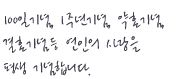 100일기념, 1주년기념, 약혼기념,
결혼기념등 연인의 사랑을
평생 기념합니다.